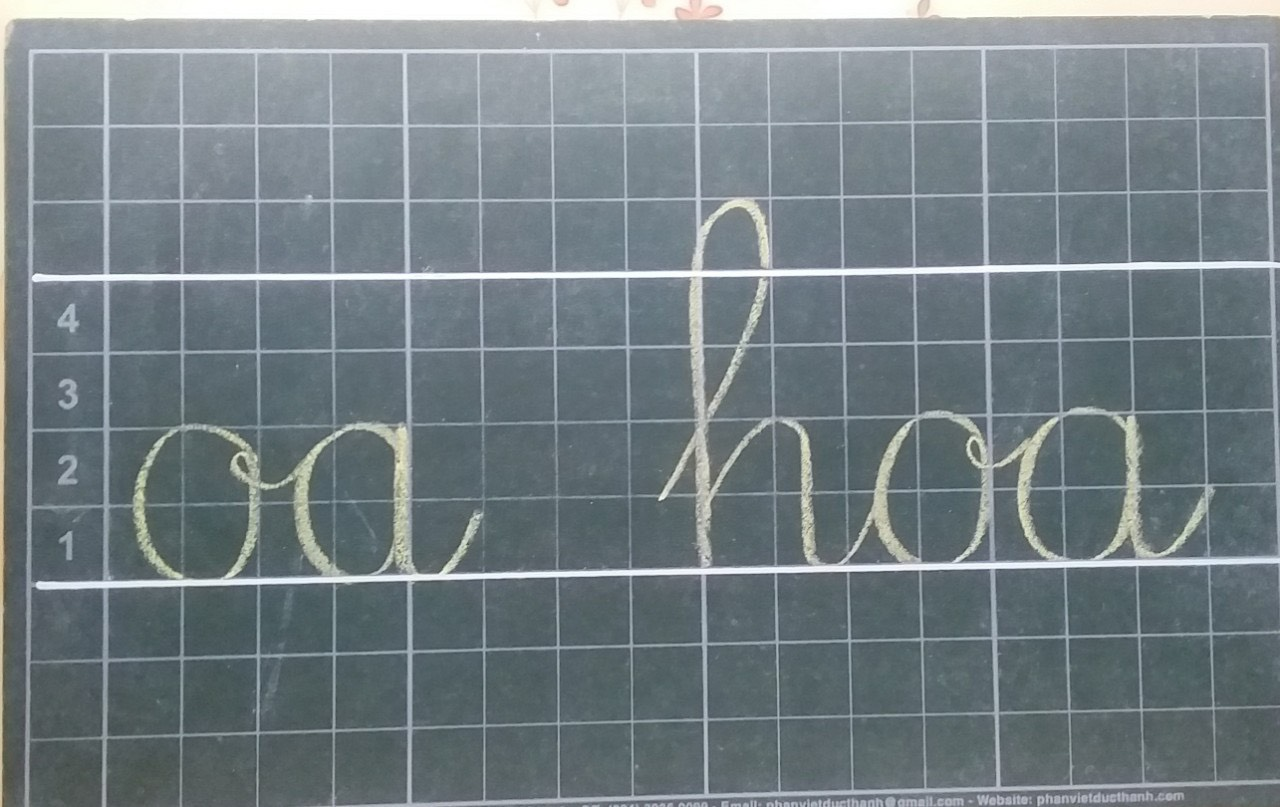 4
3
2
1
oa hoa
Email: phanvietducthanh@gmail.com - Website: phanvietducthanh.com